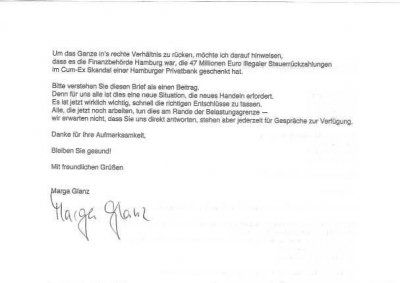 Um das Ganze in's rechte Verhältnis zu rücken, möchte ich darauf hinweisen,
dass es die Finanzbehörde Hamburg war, die 47 Millionen Euro illegaler Steuerrückzahlungen
im Cum-Ex Skandal einer Hamburger Privatbank geschenkt hat.
Bitte verstehen Sie diesen Brief als einen Beitrag.
Denn für uns alle ist dies eine neue Situation, die neues Handeln erfordert.
Es ist jetzt wirklich wichtig, schnell die richtigen Entschlüsse zu fassen.
Alle, die jetzt noch arbeiten, tun dies am Rande der Belastungsgrenze —
wir erwarten nicht, dass Sie uns direkt antworten, stehen aber jederzeit für Gespräche zur Verfügung.
Danke für Ihre Aufmerksamkeit,
Bleiben Sie gesund!
Mit freundlichen Grüßen
Marga Glanz
Marga Glanz